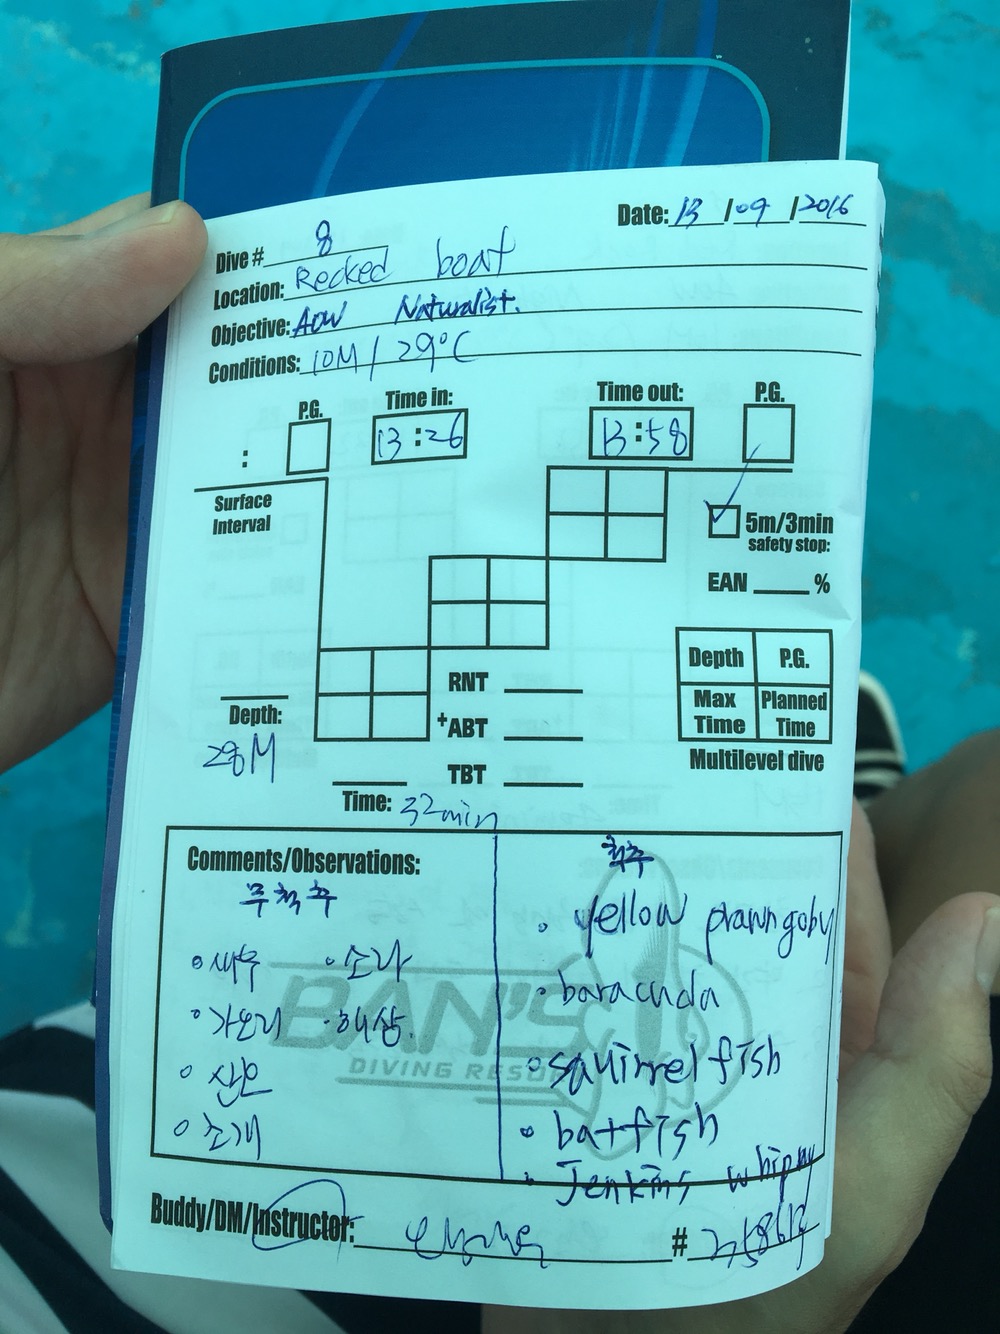 Date: 13/09/2016
Dive # 8
Location: Recked boat
Objective: AOW Naturalist.
Conditions: 10M / 29°C
P.G. Time in: Time out: P.G.
: 13:26 13:58
Surface
Interval
5m/3min
safety stop:
EAN %
Depth P.G.
Max
Time
Planned
Time
Multilevel dive
RNT
+ABT
TBT
Depth:
28M
Time: 32min
Comments/Observations:
무척추
• 새우 • 소라
• 가오리 • 해삼.
• 산호
• 조개
척추
• yellow prawn goby
• baracuda
• squirrel fish
• batfish
• Jenkins whipray
BAN'S
DIVING RESO
Buddy/DM/Instructor:
#